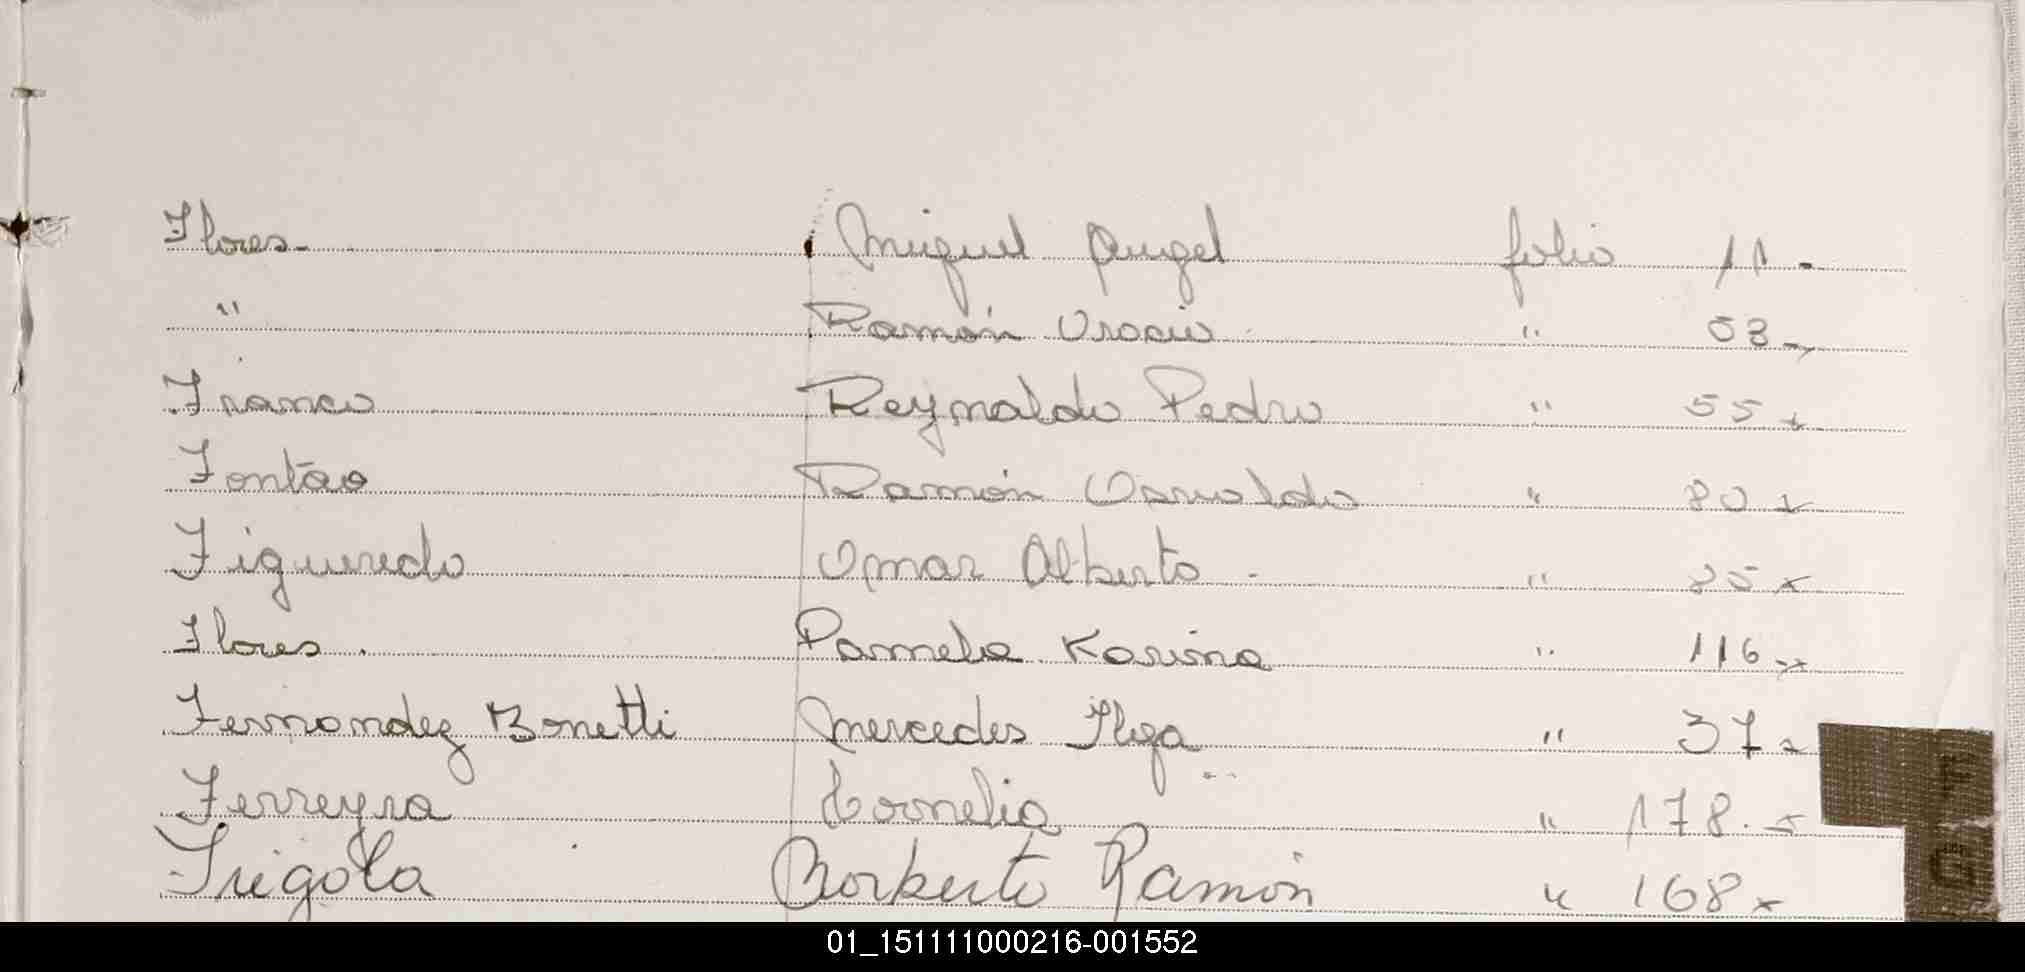 Flores - Miguel Angel folio 11 -
" Ramón Orocio " 58 -
Franco Reynaldo Pedro " 55 -
Fontão Ramón Osvaldo " 80
Figueredo Omar Alberto - " 85
Flores . Pamela Karina " 116
Fernandez Bonetti Mercedes Ilga " 37 -
Ferreyra Cornelia " 178. -
Frigola Norberto Ramón " 168
F
G
01_151111000216-001552